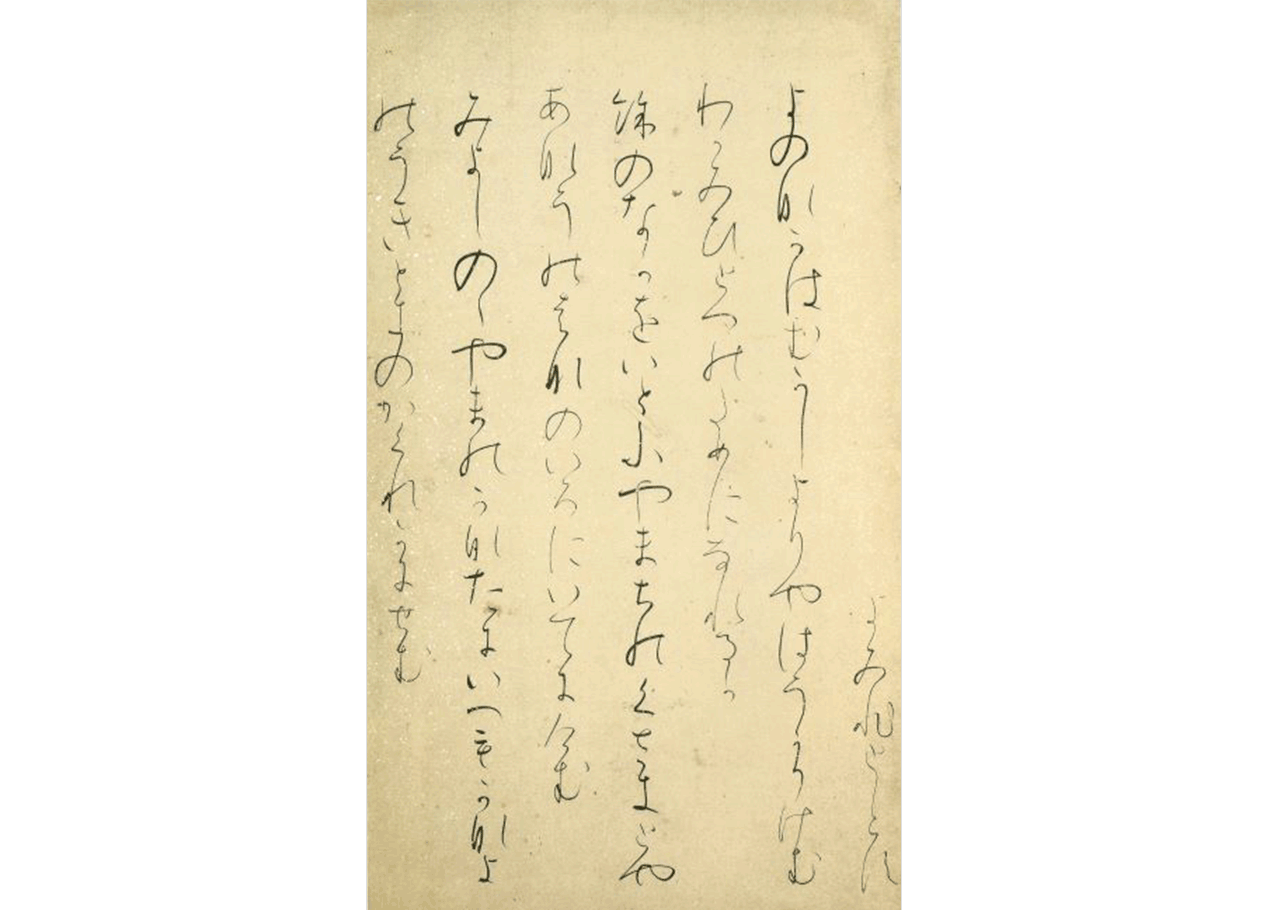 よみひとしらす
よのなかはむかしよりやはうかりけむ
わかみひとつのためになれるか
餘のなかをいとふやまちのくさきとや
あなうのはなのいろにいてにけむ
みよしのゝやまのかなたにいへもかなよ
のうきときのかくれかにせむ